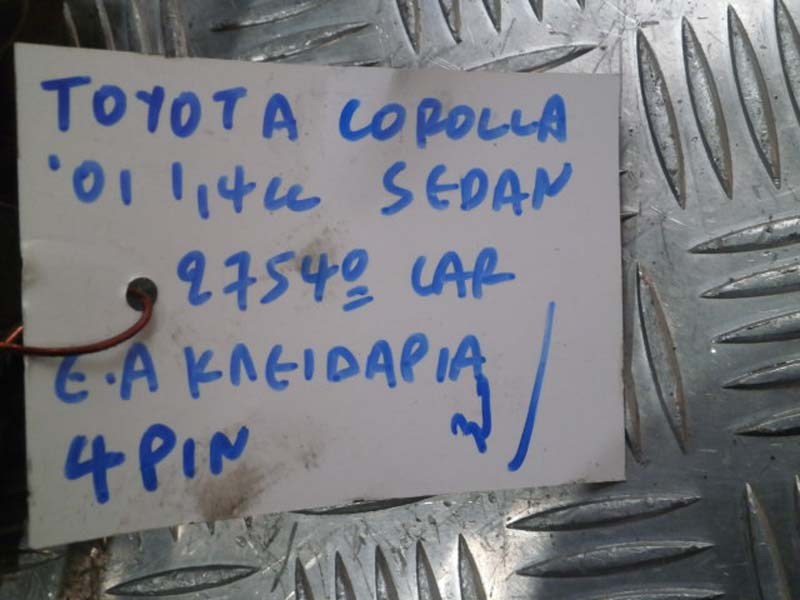 TOYOTA COROLLA
'01 1,4cc SEDAN
2754º CAR
E.A ΚΛΕΙΔΑΡΙΑ
4 PIN